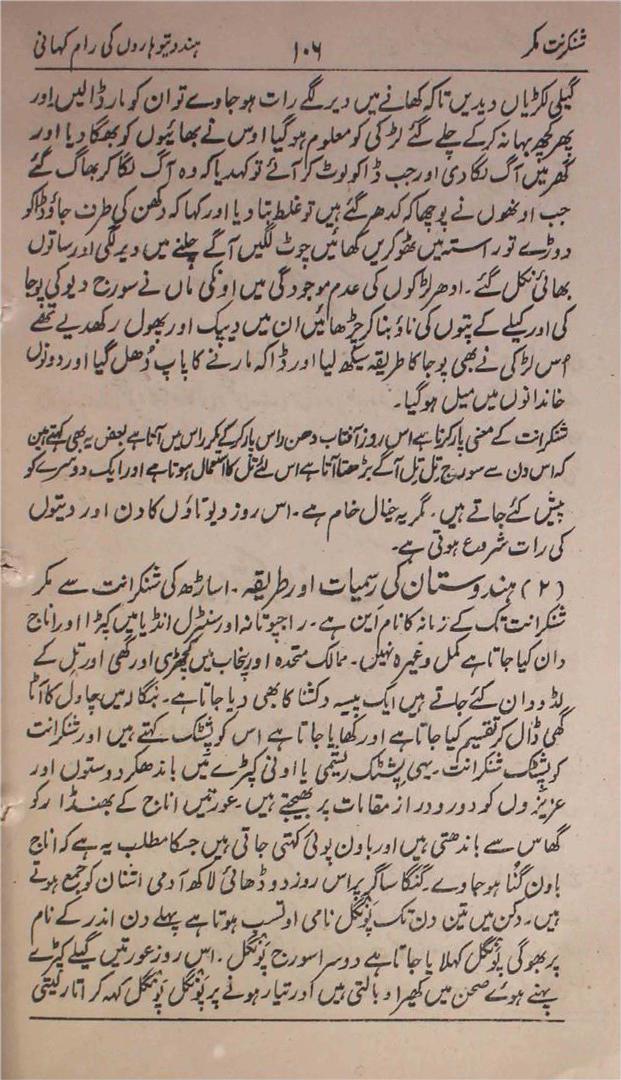 شنکرنت مکر ۱۰۶ ہندو تیوہاروں کی رام کہانی
گیلی لکڑیاں دیدیں تاکہ کھانے میں دیر لگے رات ہو جاوے تو ان کو مار ڈالیں اور
پھر کچھ بہانہ کر کے چلے گئے لڑکی کو معلوم ہو گیا اوس نے بھائیوں کو بھگا دیا اور
گھر میں آگ لگا دی اور جب ڈاکو لوٹ کر آئے تو کہدیا کہ وہ آگ لگا کر بھاگ گئے
جب اونھوں نے پوچھا کہ کدھر گئے ہیں تو غلط بتا دیا اور کہا کہ دکھن کی طرف جاؤ ڈاکو
دوڑے تو راستہ میں ٹھوکریں کھائیں چوٹ لگیں آگے چلنے میں دیر لگی اور ساتوں
بھائی نکل گئے۔ ادھر لڑکوں کی عدم موجودگی میں اونکی ماں نے سورج دیو کی پوجا
کی اور کیلے کے پتوں کی ناؤ بنا کر چڑھائیں ان میں دیپک اور پھول رکھدیے تھے
اُس لڑکی نے بھی پوجا کا طریقہ سیکھ لیا اور ڈاکہ مارنے کا پاپ دُھل گیا اور دونوں
خاندانوں میں میل ہو گیا۔
شنکرانت کے معنی پار کرنا ہے اس روز آفتاب دھن راس پار کر کے مکر راس میں آتا ہے بعض یہ بھی کہتے ہین
کہ اس دن سے سورج تِل تِل آگے بڑھتا آتا ہے اس لئے تل کا استعمال ہوتا ہے اور ایک دوسرے کو
پیش کئے جاتے ہیں۔ مگر یہ خیال خام ہے۔ اس روز دیوتاؤں کا دن اور دیتوں
کی رات شروع ہوتی ہے۔
(۲) ہندوستان کی رسمیات اور طریقہ۔ اساڑھ کی شنکرانت سے مکر
شنکرانت تک کے زمانہ کا نام این ہے۔ راجپوتانہ اور سنٹرل انڈیا میں کپڑا اور اناج
دان کیا جاتا ہے کمل وغیرہ نہیں۔ ممالک متحدہ اور پنجاب میں کھچڑی اور گھی اور تل کے
لڈو دان کئے جاتے ہیں ایک پیسہ دکشنا کا بھی دیا جاتا ہے۔ بنگالہ میں چاول کا آٹا
گھی ڈال کر تقسیم کیا جاتا ہے اور کھایا جاتا ہے اس کو پشٹک کہتے ہیں اور شنکرانت
کو پشٹک شنکرانت۔ یہی پشٹک ریشمی یا اونی کپڑے میں باندھکر دوستوں اور
عزیزوں کو دور دراز مقامات پر بھیجتے ہیں۔ عورتیں اناج کے بھنڈار کو
گھاس سے باندھتی ہیں اور باون پوٹی کہتی جاتی ہیں جسکا مطلب یہ ہے کہ اناج
باون گُنا ہو جاوے۔ گنگا ساگر پر اس روز دو ڈھائی لاکھ آدمی اشنان کو جمع ہوتے
ہیں۔ دکن میں تین دن تک پَونگل نامی اوتسب ہوتا ہے پہلے دن اندر کے نام
پر بھوگی پَونگل کہلایا جاتا ہے دوسرا سورج پَونگل۔ اس روز عورتیں گیلے کپڑے
پہنے ہوئے صحن میں کھیر اوبالتی ہیں اور تیار ہونے پر پَونگل پَونگل کہہ کر اتار لیتی